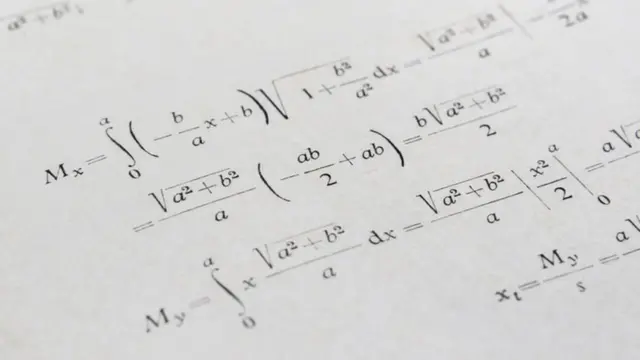 a² + b²
Mₓ = ∫₀ᵃ (−b/a x + b) √(1 + b²/a²) dx = √(a² + b²)/a | − /2a
= √(a² + b²)/a (−ab/2 + ab) = b√(a² + b²)/2
M_y = ∫₀ᵃ x √(a² + b²)/a dx = √(a² + b²)/a | x²/2 |₀ᵃ = a√
xₜ = M_y/s = a√